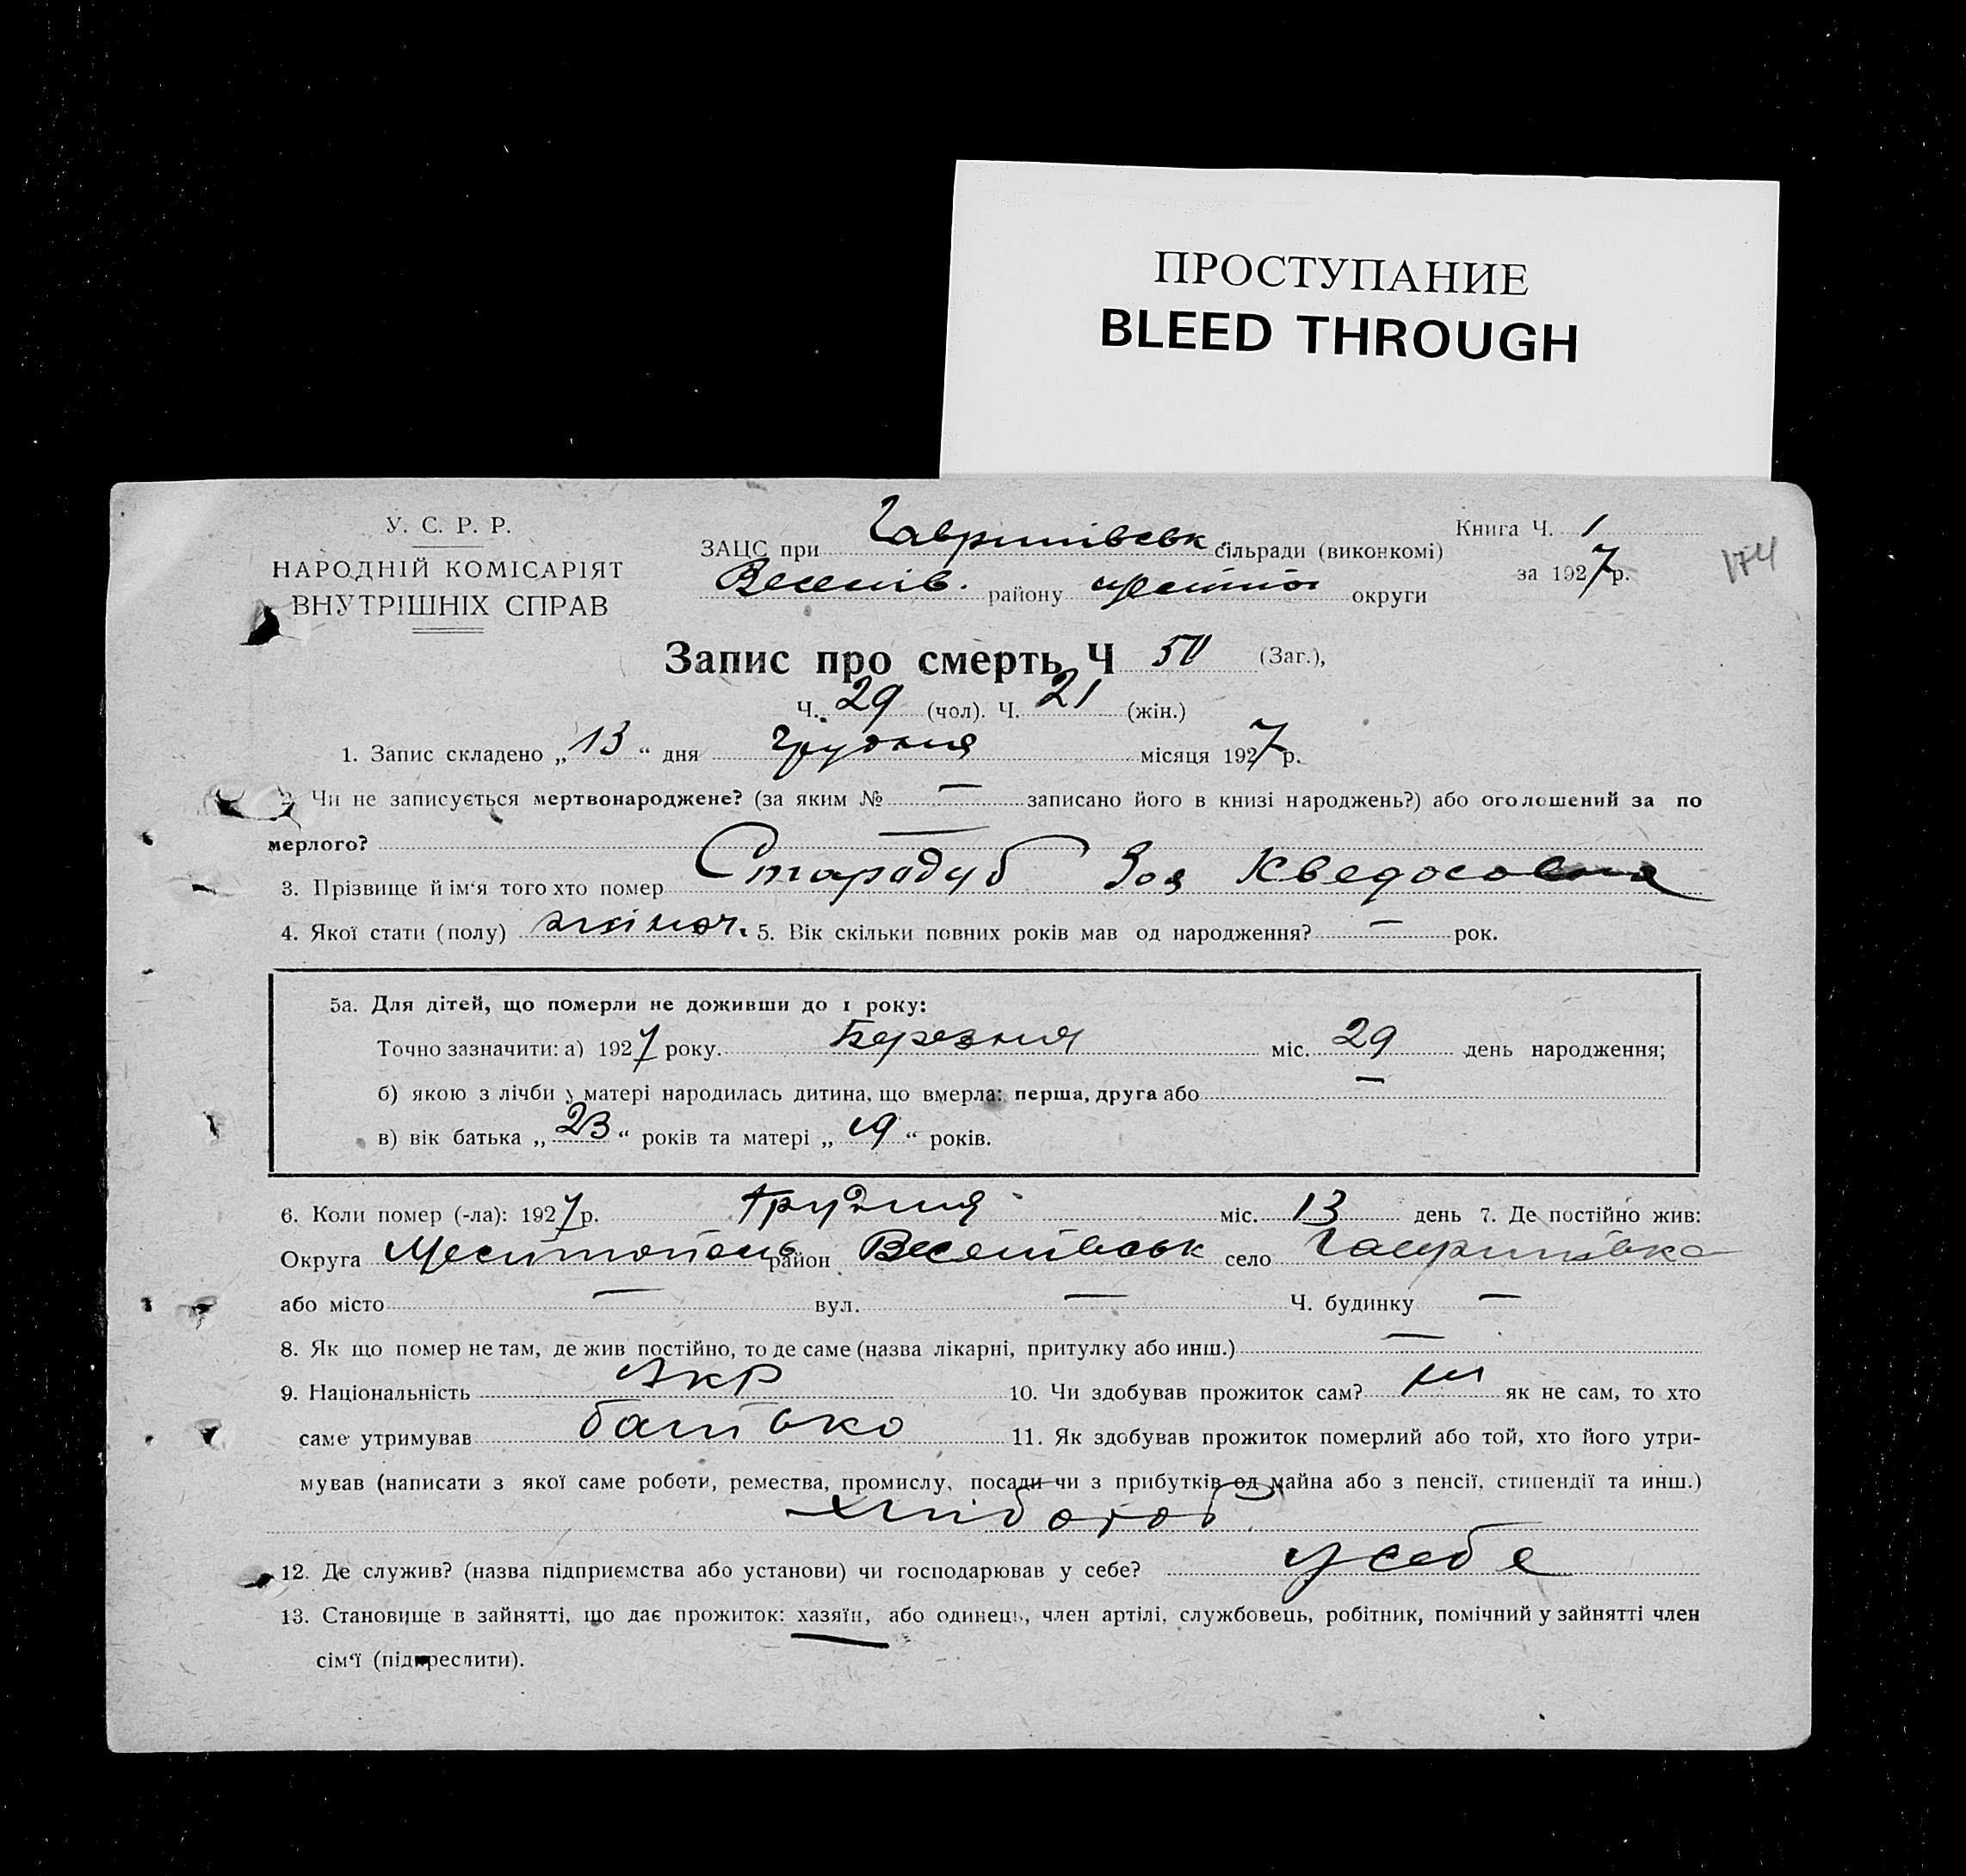 ПРОСТУПАНИЕ
BLEED THROUGH
У. С. Р. Р.
НАРОДНІЙ КОМІСАРІЯТ
ВНУТРІШНІХ СПРАВ
Книга Ч. 1
за 1927 р.
174
ЗАЦС при Гаврилівськ. сільради (виконкомі)
Веселів. району округи
Запис про смерть Ч 50 (Заг.),
Ч. 29 (чол). Ч. 21 (жін.)
1. Запис складено „ 13 “ дня Грудня місяця 1927 р.
2. Чи не записується мертвонароджене? (за яким № — записано його в книзі народжень?) або оголошений за по
мерлого? —
3. Прізвище й ім'я того хто помер Стародуб Зоя
4. Якої стати (полу) жіноч. 5. Вік скільки повних років мав од народження? — рок.
5а. Для дітей, що померли не доживши до 1 року:
Точно зазначити: а) 1927 року. Березня міс. 29 день народження;
б) якою з лічби у матері народилась дитина, що вмерла: перша, друга або —
в) вік батька „ 23 “ років та матері „ 19 “ років.
6. Коли помер (-ла): 1927 р. Грудня міс. 13 день 7. Де постійно жив:
Округа Мелітопольс район Веселівськ село Гаврилівка
або місто — вул. — Ч. будинку —
8. Як що помер не там, де жив постійно, то де саме (назва лікарні, притулку або инш.) —
9. Національність Укр 10. Чи здобував прожиток сам? ні як не сам, то хто
саме утримував батько 11. Як здобував прожиток померлий або той, хто його утри-
мував (написати з якої саме роботи, ремества, промислу, посади чи з прибутків од майна або з пенсії, стипендії та инш.)
хлібороб
12. Де служив? (назва підприємства або установи) чи господарював у себе? у себе
13. Становище в зайнятті, що дає прожиток: хазяїн, або одинець, член артілі, службовець, робітник, помічний у зайнятті член
сім'ї (підкреслити).